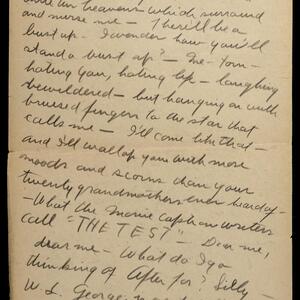 heavens - which surround
and nurse me - There'll be a
bust up. I wonder how you'll
stand a bust up? - Me - Torn -
hating you, hating life - laughing
bewildered - but hanging on with
bruised fingers to the star that
calls me - I'll come like that -
and I'll wallop you with more
moods and scorns than your
twenty grandmothers ever heard of -
- What the movie caption writers
call "THE TEST" - Dear me,
dear me - What do I go
thinking of after for? Silly -
W. L. George